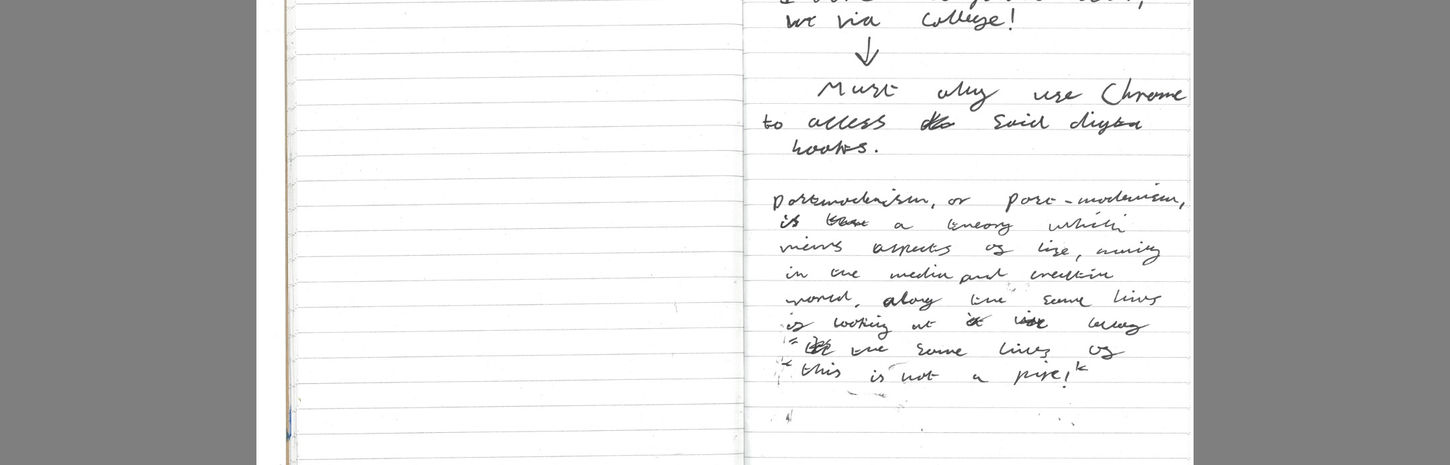 but via College!
↓
Must only use Chrome
to access said digital
books.
Postmodernism, or post-modernism,
is a theory which
views aspects of life, mainly
in the media and creative
world, along the same lines
of looking at
the same lines of
"this is not a pipe!"